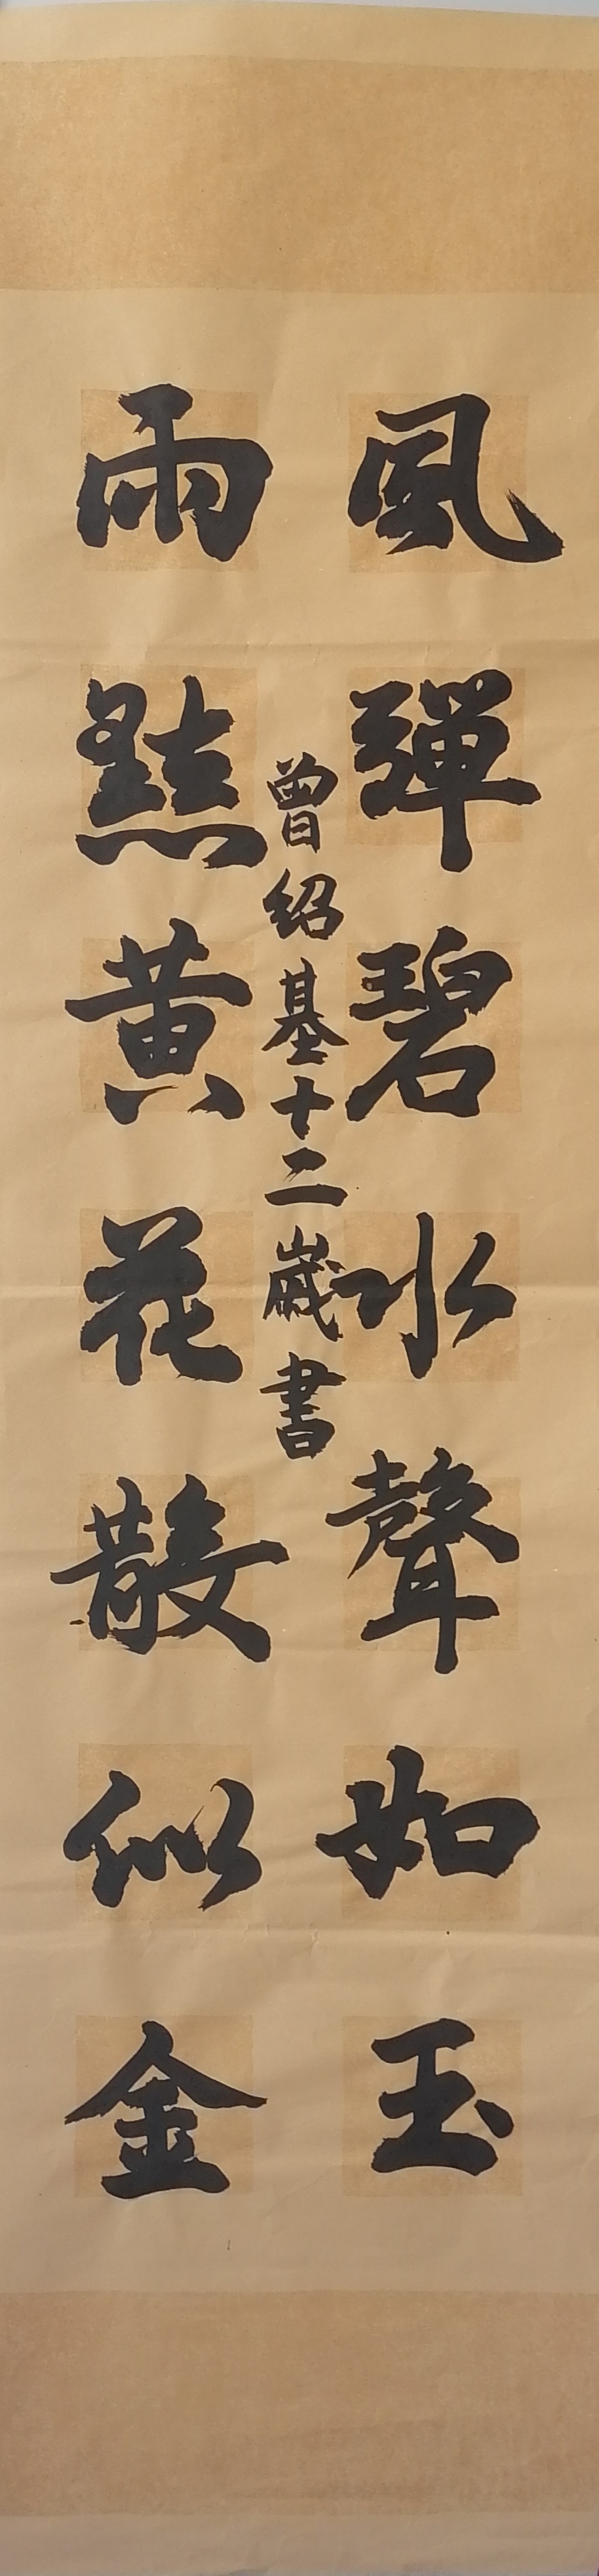 風彈碧水聲如玉
雨點黃花散似金
曾紹基十二歲書